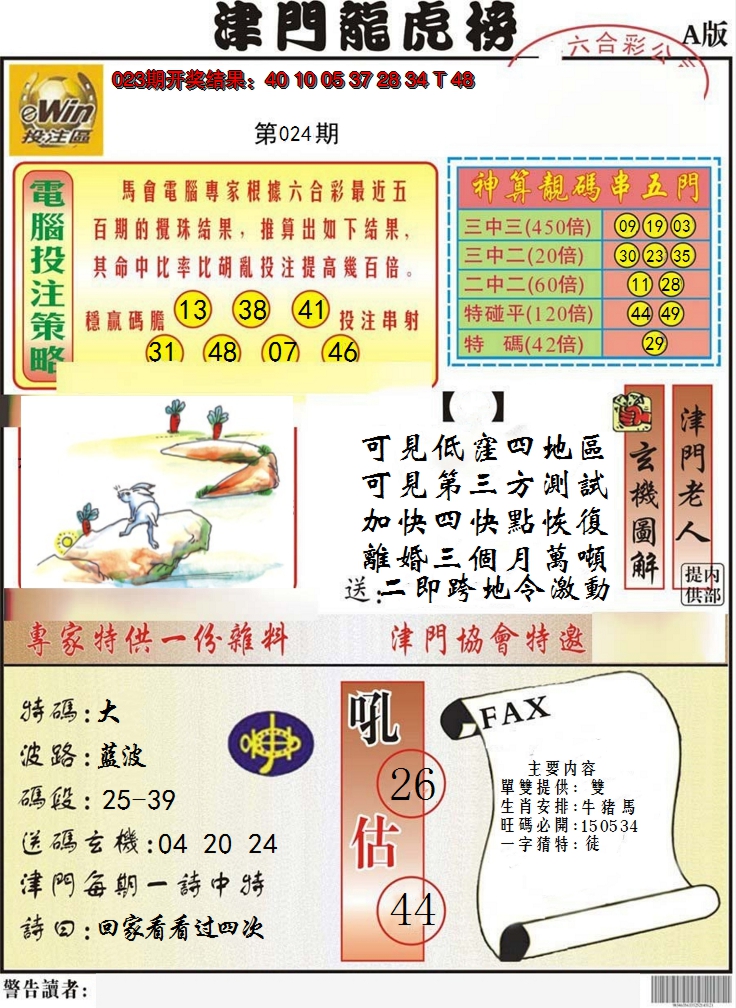 津門龍虎榜
A版
六合彩公
eWin
投注區
023期开奖结果：40 10 05 37 28 34 T 48
第024期
電腦投注策略
馬會電腦專家根據六合彩最近五
百期的攪珠结果，推算出如下结果，
其命中比率比胡亂投注提高幾百倍。
穩贏碼膽 13 38 41 投注串射
31 48 07 46
神算靚碼串五門
三中三(450倍) 09 19 03
三中二(20倍) 30 23 35
二中二(60倍) 11 28
特碰平(120倍) 44 49
特 碼(42倍) 29
【 】
可見低窪四地區
可見第三方測試
加快四快點恢復
離婚三個月萬噸
送：二即跨地令激動
玄機圖解
津門老人
內部提供
專家特供一份雜料
津門協會特邀
特碼：大
波路：藍波
碼段：25-39
送碼玄機：04 20 24
津門每期一詩中特
詩曰：回家看看过四次
吼
26
估
44
FAX
主要内容
單雙提供：雙
生肖安排：牛豬馬
旺碼必開：150534
一字猜特：徒
警告讀者：